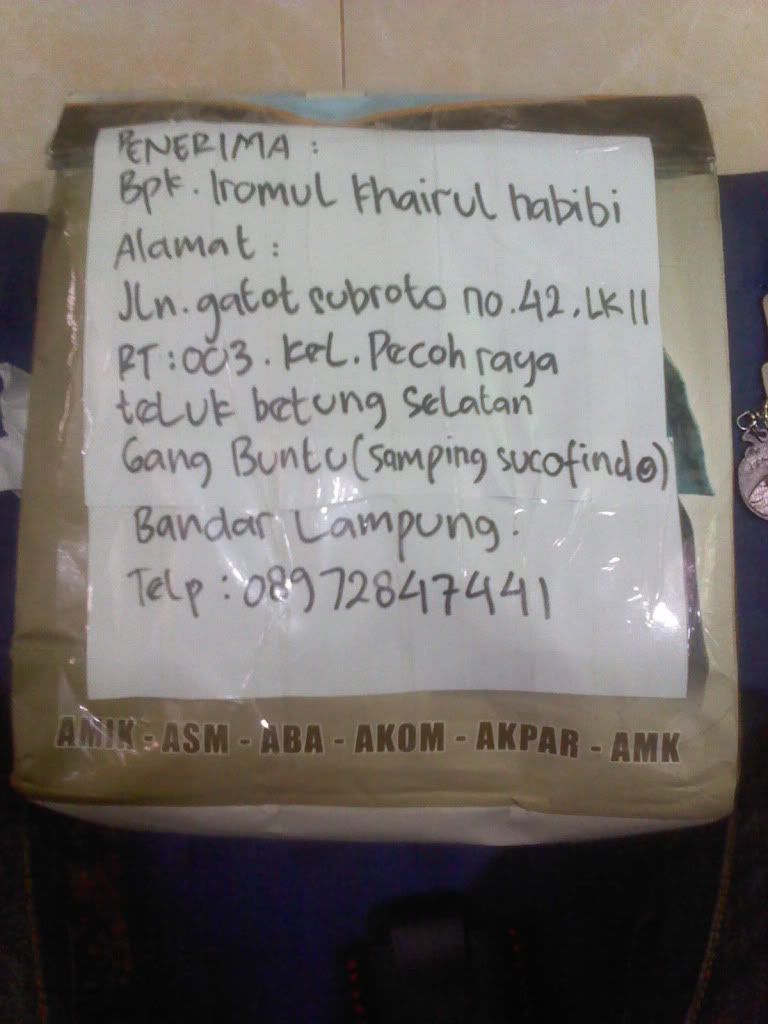 PENERIMA :
Bpk. Iromul Khairul habibi
Alamat :
Jln. gatot subroto no. 42. LK II
RT : 003. Kel. Pecoh raya
teluk betung selatan
Gang Buntu (samping sucofindo)
Bandar Lampung.
Telp : 08972847441
AMIK - ASM - ABA - AKOM - AKPAR - AMK